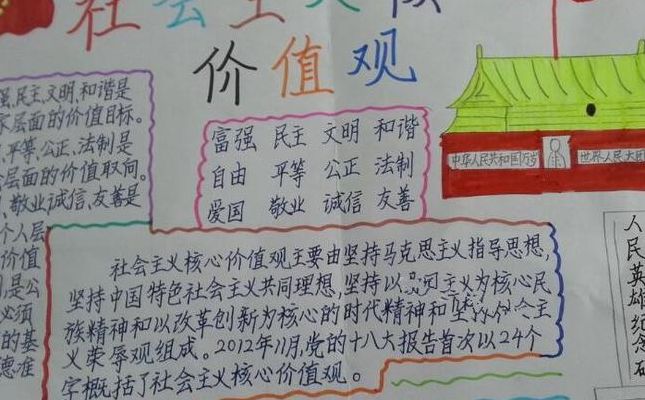 社会主义核
价值观
强,民主,文明,和谐是
家层面的价值目标。
平等、公正、法制是
会层面的价值取向。
、敬业、诚信、友善是
个人层
价值
则是公
必须
的基
德准
富强 民主 文明 和谐
自由 平等 公正 法制
爱国 敬业 诚信 友善
中华人民共和国万岁
世界人民大团
社会主义核心价值观主要由坚持马克思主义指导思想,
坚持中国特色社会主义共同理想,坚持以为核心民
族精神和以改革创新为核心的时代精神和坚会主
义荣辱观组成。2012年11月,党的十八大报告首次以24个
字概括了社会主义核心价值观。
人民英雄纪念碑